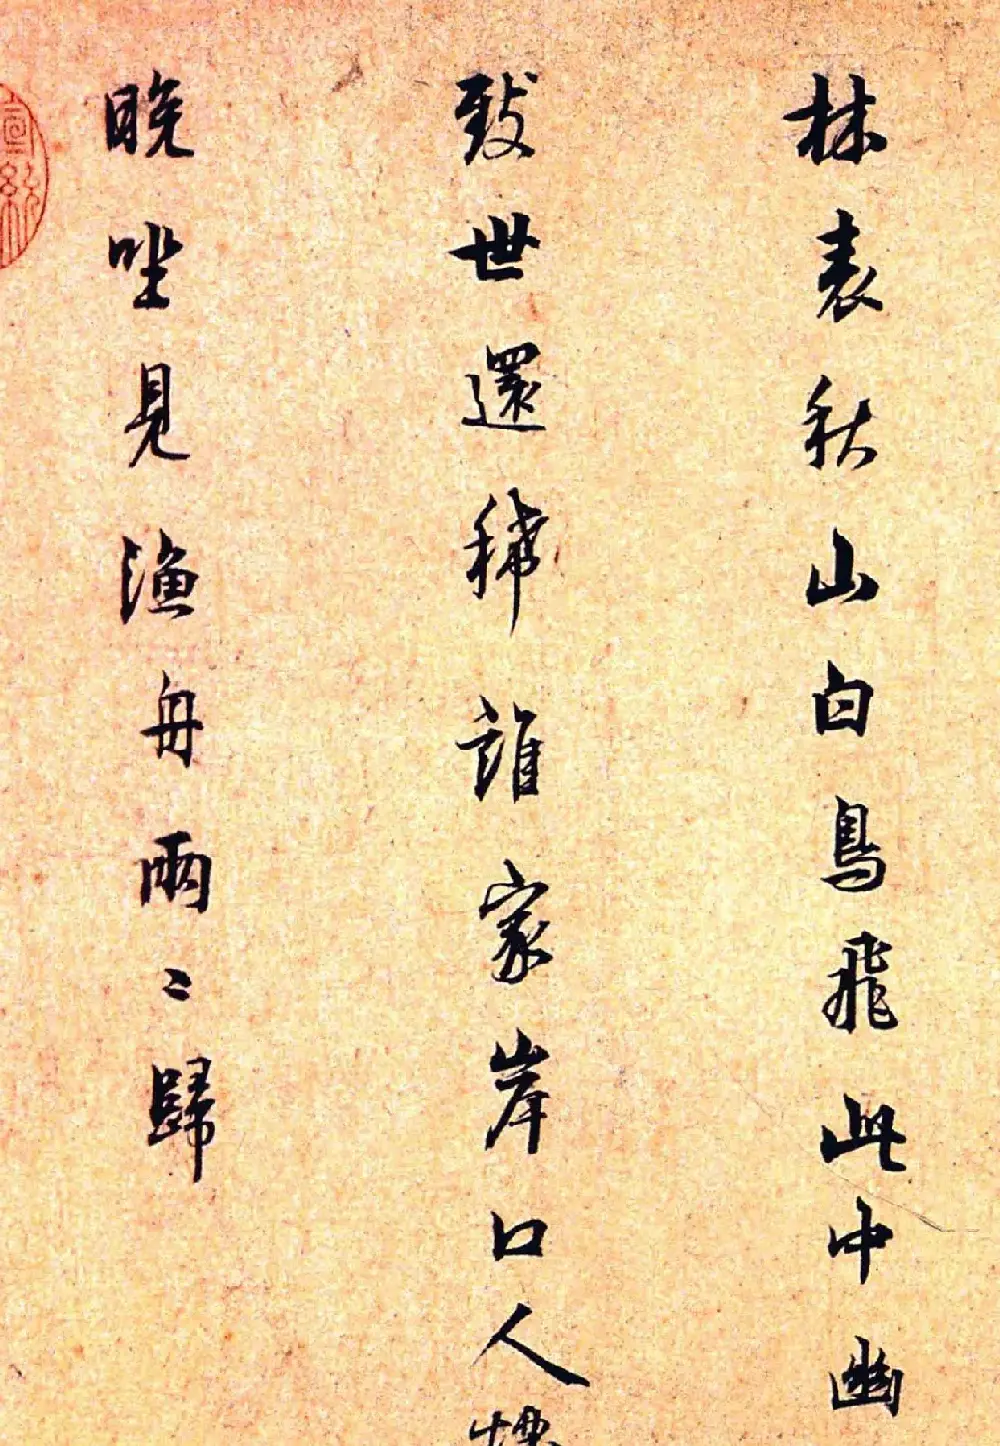 林表秋山白鳥飛此中幽
致世還稀誰家岸口人
晚坐見漁舟兩〻歸